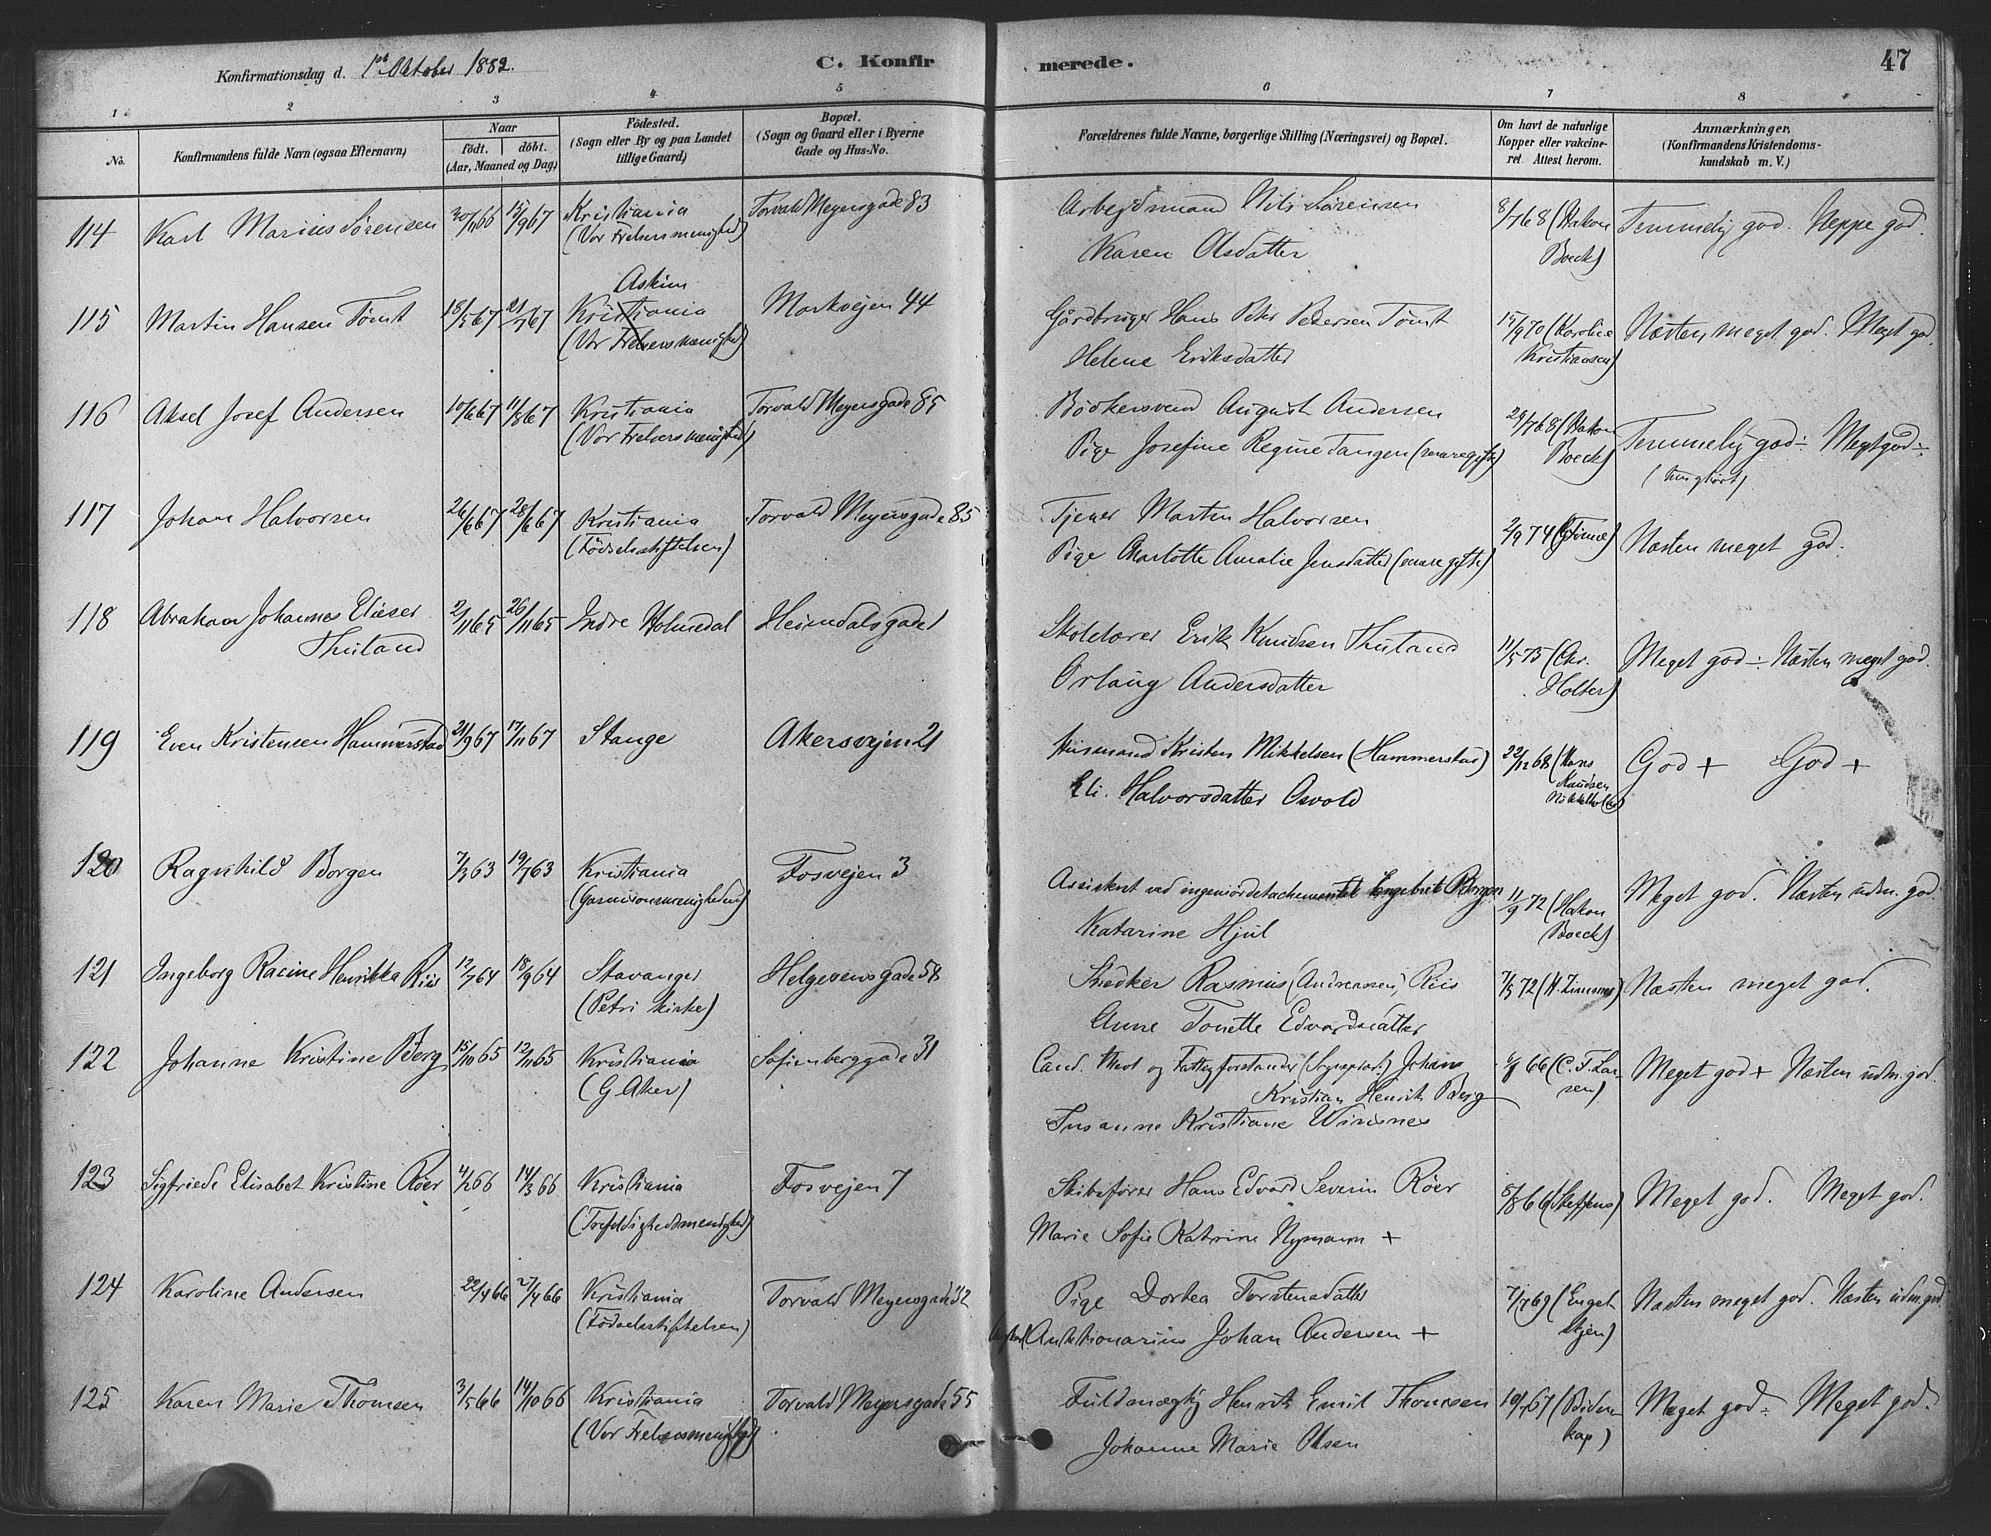 Konfirmationsdag d. 1ste Oktober 1882.
C. Konfirmerede.
47
1 2 3 4 5 6 7 8
No.
Konfirmandens fulde Navn (ogsaa Efternavn)
Naar
födt. döbt.
(Aar, Maaned og Dag)
Födested.
(Sogn eller By og paa Landet
tillige Gaard)
Bopæl.
(Sogn og Gaard eller i Byerne
Gade og Hus-No.
Forældrenes fulde Navne, borgerlige Stilling (Næringsvei) og Bopæl.
Om havt de naturlige
Kopper eller vakcine-
ret. Attest herom.
Anmærkninger,
(Konfirmandens Kristendoms-
kundskab m. V.)
114 Karl Marius Sörensen 30/11 66 15/9 67 Kristiania Torvald Meyersgade 83 Arbejdsmand Nils Sörensen 8/7 68 (Hakon Temmelig god. Neppe god.
(Vor Frelsers menighed) Karen Olsdatter Boeck)
Askim
115 Martin Hansen Tömt 18/5 67 21/7 67 Kristiania Markvejen 44 Gårdbruger Hans Peter Pedersen Tömt 15/9 70 (Karoline Næsten meget god. Meget god.
(Vor Frelsers menighed) Helene Eriksdatter Kristiansen)
116 Aksel Josef Andersen 10/6 67 11/8 67 Kristiania Torvald Meyersgade 85 Bödkersvend August Andersen 29/7 68 (Hakon Temmelig god ÷ Meget god ÷
(Vor Frelsers menighed) Pige Josefine Regine Tangen (senere gifte) Boeck)
117 Johan Halvorsen 26/6 67 28/6 67 Kristiania Torvald Meyersgade 85 Tjener Martin Halvorsen 2/9 74 Næsten meget god.
(Födselsstiftelsen) Pige Charlotte Amalie Jensdatter (senere gifte)
118 Abraham Johannes Elieser 2/11 65 26/11 65 Indre Holmedal Heimdalsgade 1 Skolelærer Erik Knudsen Thuland 11/5 75 (Chr. Meget god ÷ Næsten meget god.
Thuland Orlaug Andersdatter Holter)
119 Even Kristensen Hammerstad 21/9 67 17/11 67 Stange Akersvejen 21 Husmand Kristen Mikkelsen (Hammerstad) 22/12 68 (Hans God + God +
Eli Halvorsdatter Osvold Knudsen
120 Ragnhild Borgen 7/3 63 19/7 63 Kristiania Fosvejen 3 Assistent ved ingeniördetachementet Engebret Borgen 11/9 72 (Hakon Meget god. Næsten udm. god.
(Garnisonsmenigheden) Katarine Hjul Boeck)
121 Ingeborg Racine Henrikka Riis 12/7 64 18/9 64 Stavanger Helgesensgade 58 Snedker Rasmus (Andreassen) Riis 7/5 72 Næsten meget god.
(Petri kirke) Anne Tonette Edvardsdatter
122 Johanne Kristine Berg 15/10 65 12/11 65 Kristiania Sofienberggade 31 Cand. theol og Fattigforstander (Sognepræst) Johan 66 (C. F. Lar- Meget god + Næsten udm. god.
(G Aker) Kristian Henrik Berg sen)
Susanne Kristiane Winsnes
123 Sigfriede Elisabet Kristine Röer 4/2 66 14/3 66 Kristiania Fosvejen 7 Skibsförer Hans Edvard Severin Röer 5/8 66 (Steffens) Meget god. Meget god.
(Trefoldighedsmenighed) Marie Sofie Katrine Nymann +
124 Karoline Andersen 22/4 66 27/4 66 Kristiania Torvald Meyersgade 32 Pige Dortea Torstensdatter 7/7 69 (Enget- Næsten meget god. Næsten udm. god
(Födselsstiftelsen) Auktionarius Johan Andersen + skjen)
125 Karen Marie Thomsen 3/5 66 14/10 66 Kristiania Torvald Meyersgade 55 Fuldmægtig Henrik Emil Thomsen 10/7 67 (Biden- Meget god ÷ Meget god.
(Vor Frelsers menighed) Johanne Marie Olsen kap)